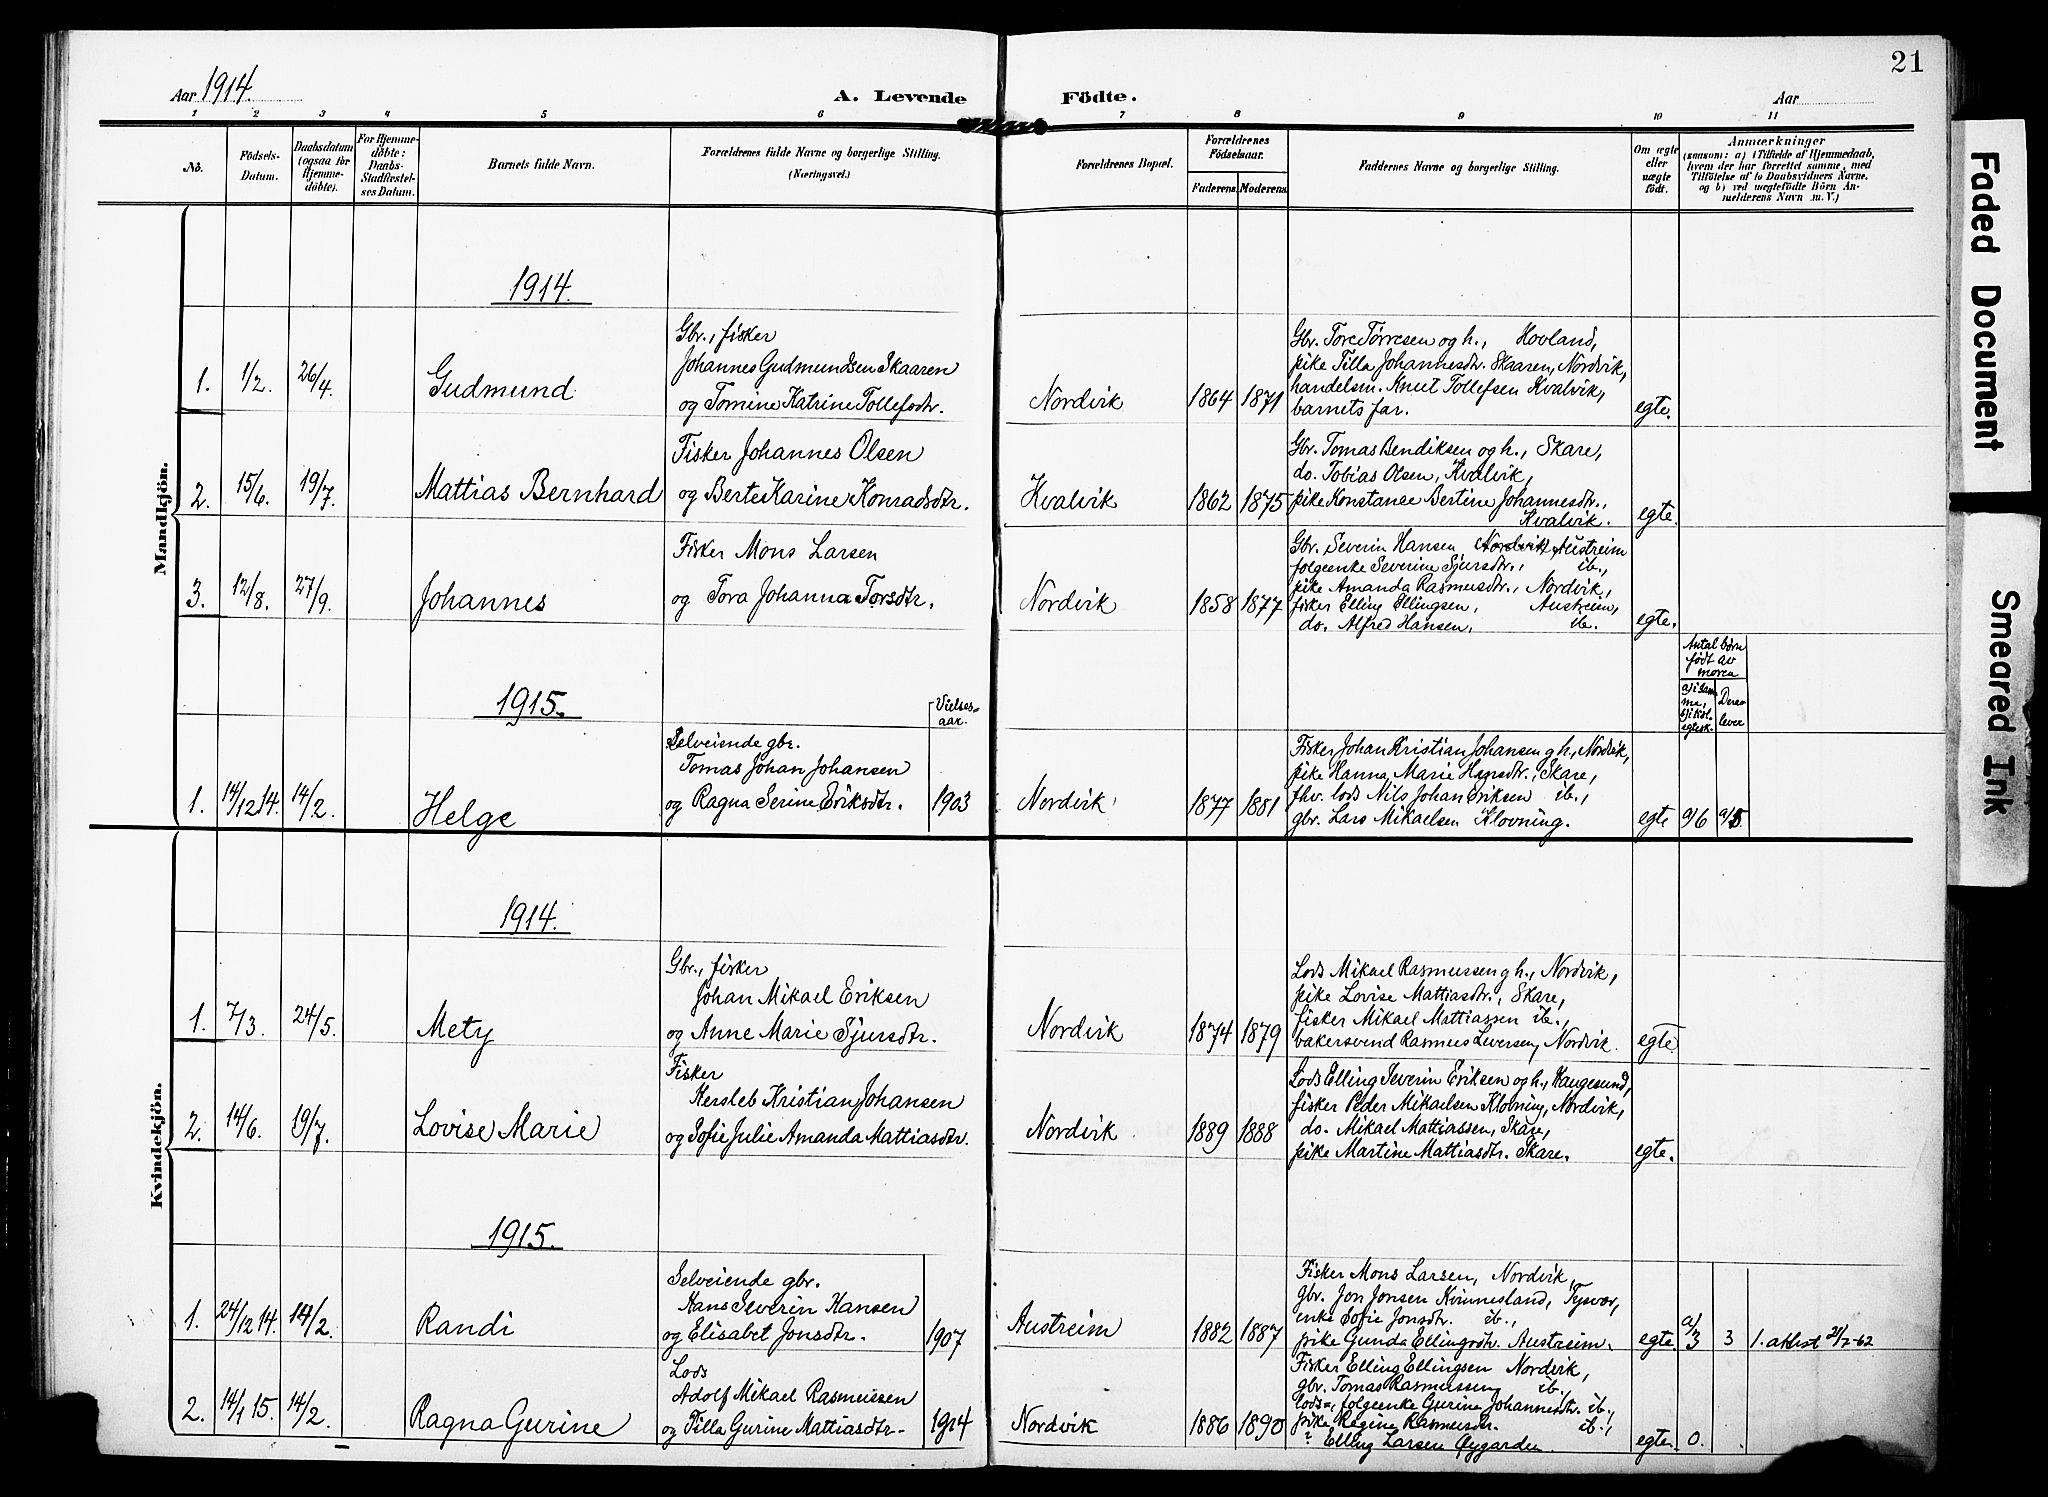 21
Aar 1914.
A. Levende Födte.
Aar
1 2 3 4 5 6 7 8 9 10 11
No.
Födsels-
Datum.
Daabsdatum
(ogsaa for
Hjemme-
döbte).
For Hjemme-
döbte:
Daabs-
Stadfæstel-
ses Datum.
Barnets fulde Navn.
Forældrenes fulde Navne og borgerlige Stilling.
(Næringsvei.)
Forældrenes Bopæl.
Forældrenes
Födselsaar.
Faderens.
Moderens.
Faddernes Navne og borgerlige Stilling.
Om ægte
eller
uægte
födt.
Anmærkninger
(saasom: a) i Tilfælde af Hjemmedaab,
hvem der har forrettet samme, med
Tilföielse af to Daabsvidners Navne,
og b) ved uægtefödte Börn An-
melderens Navn m. V.)
Mandkjön.
1914.
1. 1/2. 26/4. Gudmund
Gbr., fisker
Johannes Gudmundsen Skaaren
og Tomine Katrine Tollefsdtr.
Nordvik 1864 1871
Gbr. Tore Tørresen og h., Hovland,
pike Tilla Johannesdtr. Skaaren, Nordvik,
handelsm. Knut Tollefsen Kvalvik,
barnets far.
egte.
2. 15/6. 19/7. Mattias Bernhard
Fisker Johannes Olsen
og Berte Karine Konradsdtr.
Kvalvik 1862 1875
Gbr. Tomas Bendiksen og h., Skare,
do. Tobias Olsen, Kvalvik,
pike Konstanse Bertine Johannesdtr.,
Kvalvik.
egte.
3. 12/8. 27/9. Johannes
Fisker Mons Larsen
og Tora Johanna Torsdtr.
Nordvik 1858 1877
Gbr. Severin Hansen, Nordvik, Austreim
folgeenke Severine Sjursdtr., ib.,
pike Amanda Rasmusdtr., Nordvik,
fisker Elling Ellingsen, Austreim,
do. Alfred Hansen, ib.
egte.
1915.
Vielses-
aar.
Antal børn
født av
moren
a) i sam-
me,
b) i tidl.
egtesk.
Derav
lever
1. 14/12 14. 14/2. Helge
Selveiende gbr.
Tomas Johan Johansen
og Ragna Serine Eriksdtr. 1903
Nordvik 1877 1881
Fisker Johan Kristian Johansen g h., Nordvik,
pike Hanna Marie Hansdtr., Skare,
fhv. lods Nils Johan Eriksen ib.,
gbr. Lars Mikaelsen Klovning.
egte a/6 a/5.
Kvindekjön.
1914.
1. 7/3. 24/5. Mety
Gbr., fisker
Johan Mikael Eriksen
og Anne Marie Sjursdtr.
Nordvik 1874 1879
Lods Mikael Rasmussen g h., Nordvik,
pike Lovise Mattiasdtr., Skare,
fisker Mikael Mattiassen ib.,
bakersvend Rasmus Iversen, Nordvik.
egte
2. 14/6. 19/7. Lovise Marie
Fisker
Kersleb Kristian Johansen
og Sofie Julie Amanda Mattiasdtr.
Nordvik 1889 1888
Lods Elling Severin Eriksen og h., Haugesund,
fisker Peder Mikaelsen Klovning, Nordvik,
do. Mikael Mattiassen, Skare,
pike Martine Mattiasdtr. Skare.
egte.
1915.
1. 24/12 14. 14/2. Randi
Selveiende gbr.
Hans Severin Hansen
og Elisabet Jonsdtr. 1907
Austreim 1882 1887
Fisker Mons Larsen, Nordvik,
gbr. Jon Jonsen Kvinnesland, Tysvær,
enke Sofie Jonsdtr. ib.,
pike Gunda Ellingsdtr. Austreim.
egte. a/3 3 1. attest 21/2-62
2. 14/1 15. 14/2. Ragna Gurine
Lods
Adolf Mikael Rasmussen
og Tilla Gurine Mattiasdtr. 1914
Nordvik 1886 1890
Fisker Elling Ellingsen Nordvik,
gbr. Tomas Rasmussen ib.
lods=, folgeenke Gurine Johannesdtr. ib.,
pike Regine Rasmusdtr. ib.,
? Elling Larsen Øygarden.
egte. 0.
Faded Document
Smeared Ink